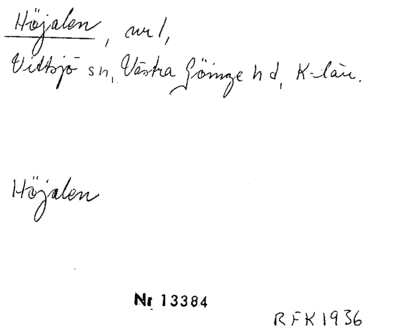 Höjalen, nr 1,
Vittsjö sn, Västra Göinge hd, K-län.
Höjalen
Nr 13384
RFK 1936